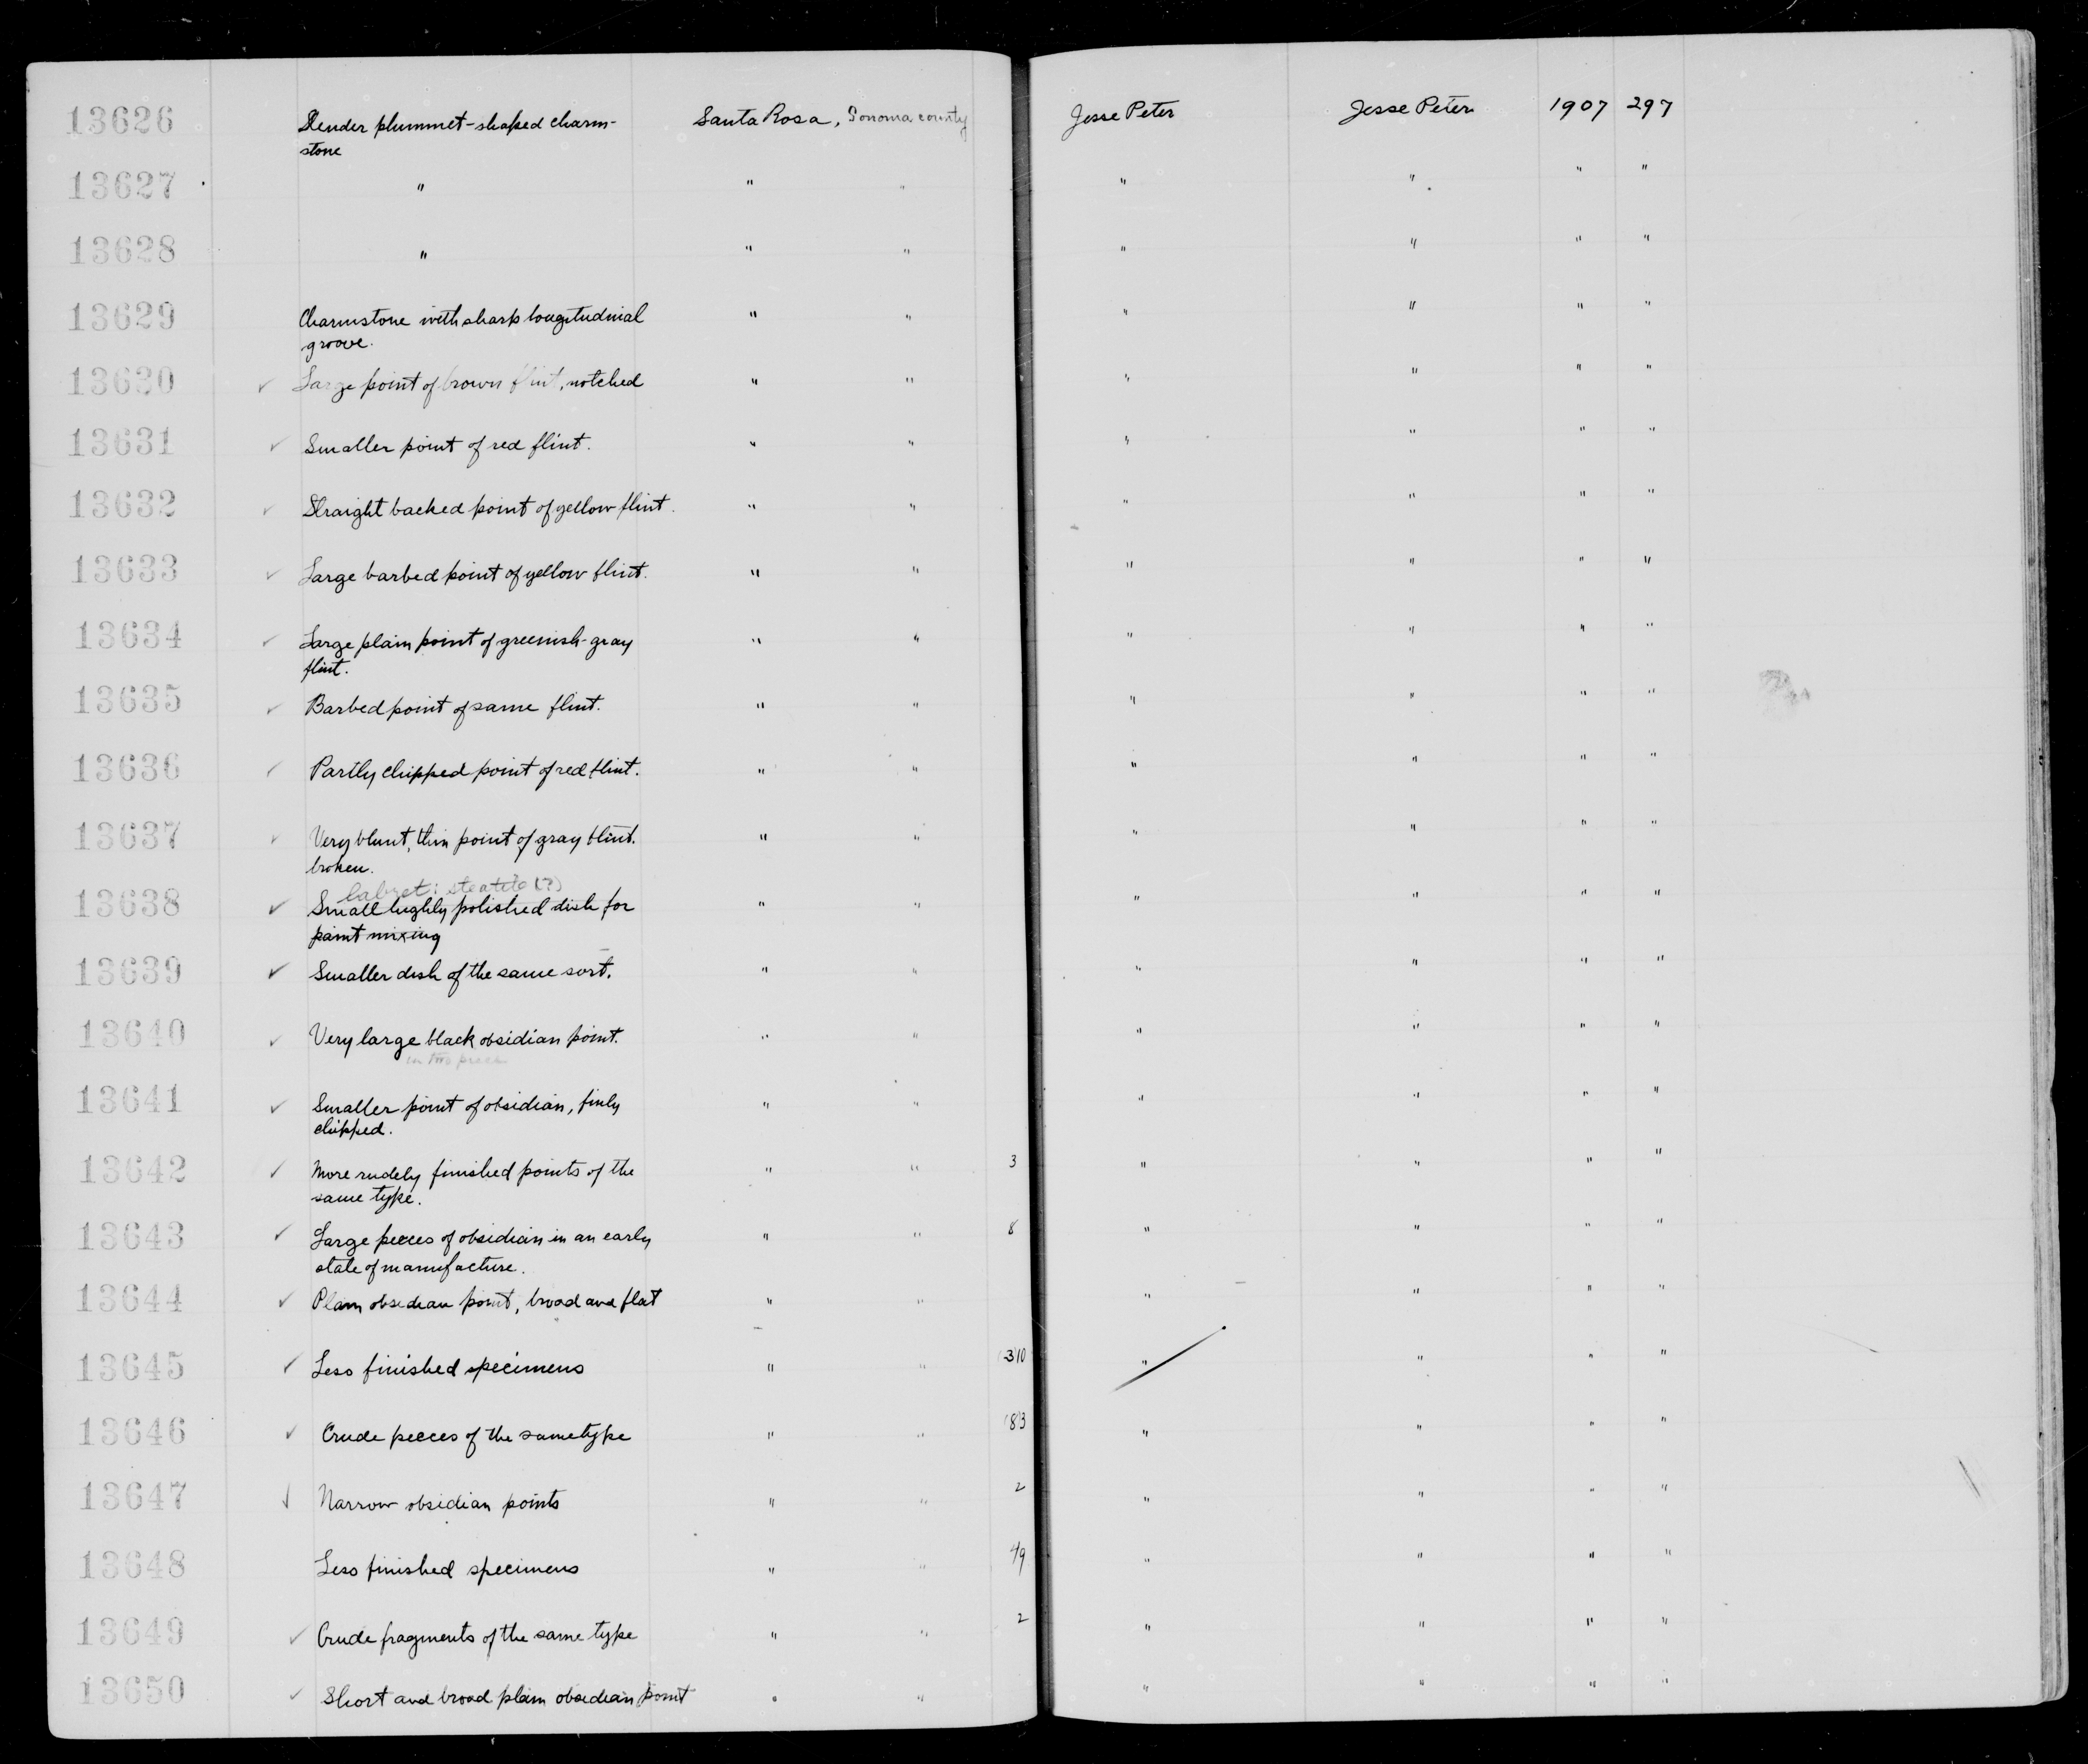 13626 Slender plummet-shaped charm- Santa Rosa, Sonoma county Jesse Peter Jesse Peter 1907 297
stone
13627 " " " " " " "
13628 " " " " " " "
13629 Charmstone with sharp longitudinal " " " " " "
groove.
13630 ✓ Large point of brown flint, notched " " " " " "
13631 ✓ Smaller point of red flint. " " " " " "
13632 ✓ Straight backed point of yellow flint. " " " " " "
13633 ✓ Large barbed point of yellow flint. " " " " " "
13634 ✓ Large plain point of greenish-gray " " " " " "
flint.
13635 ✓ Barbed point of same flint. " " " " " "
13636 ✓ Partly chipped point of red flint. " " " " " "
13637 ✓ Very blunt, thin point of gray flint. " " " " " "
broken.
labret: steatite (?)
13638 ✓ Small highly polished dish for " " " " " "
paint mixing
13639 ✓ Smaller dish of the same sort. " " " " " "
13640 ✓ Very large black obsidian point. " " " " " "
in two pieces
13641 ✓ Smaller point of obsidian, finly " " " " " "
chipped.
13642 ✓ More rudely finished points of the " " 3 " " " "
same type.
13643 ✓ Large pieces of obsidian in an early " " 8 " " " "
state of manufacture.
13644 ✓ Plain obsidian point, broad and flat " " " " " "
13645 ✓ Less finished specimens " " 310 " " " "
13646 ✓ Crude pieces of the same type " " 83 " " " "
13647 ✓ Narrow obsidian points " " 2 " " " "
13648 Less finished specimens " " 49 " " " "
13649 ✓ Crude fragments of the same type " " 2 " " " "
13650 ✓ Short and broad plain obsidian point " " " " " "